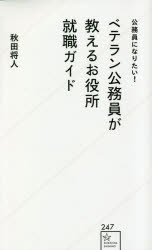 公務員になりたい!
ベテラン公務員が
教えるお役所
就職ガイド
秋田将人
247
SEIKAISHA
SHINSHO